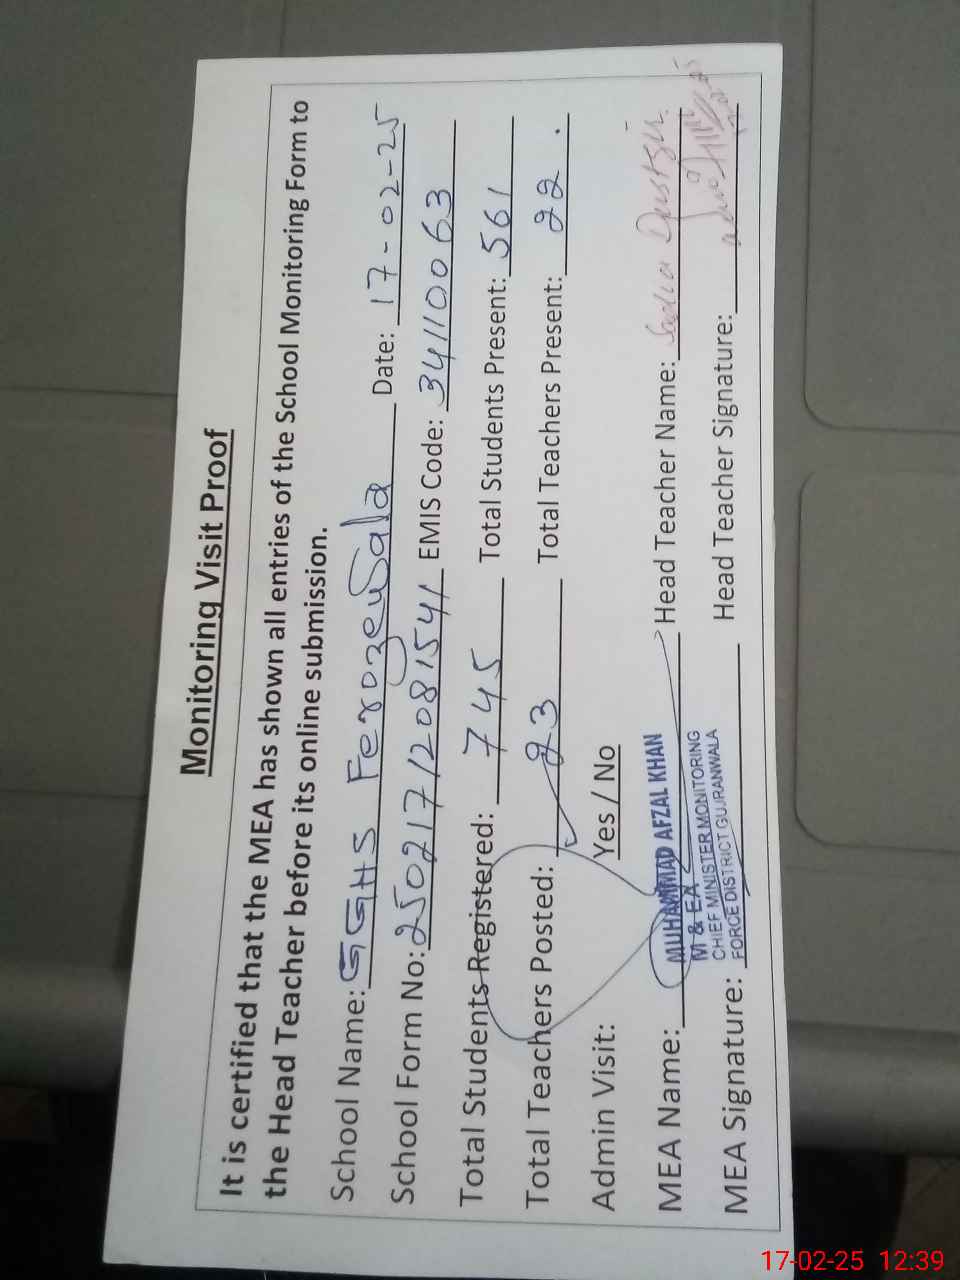 Monitoring Visit Proof
It is certified that the MEA has shown all entries of the School Monitoring Form to
the Head Teacher before its online submission.
School Name: GGHS Ferozewala Date: 17-02-25
School Form No: 250217/2081541 EMIS Code: 34110063
Total Students Registered: 745 Total Students Present: 561
Total Teachers Posted: 23 Total Teachers Present: 22.
Admin Visit: Yes / No
MEA Name: MUHAMMAD AFZAL KHAN Head Teacher Name: Sadia
M & EA
CHIEF MINISTER MONITORING
FORCE DISTRICT GUJRANWALA
MEA Signature: Head Teacher Signature:
17-02-25 12:39